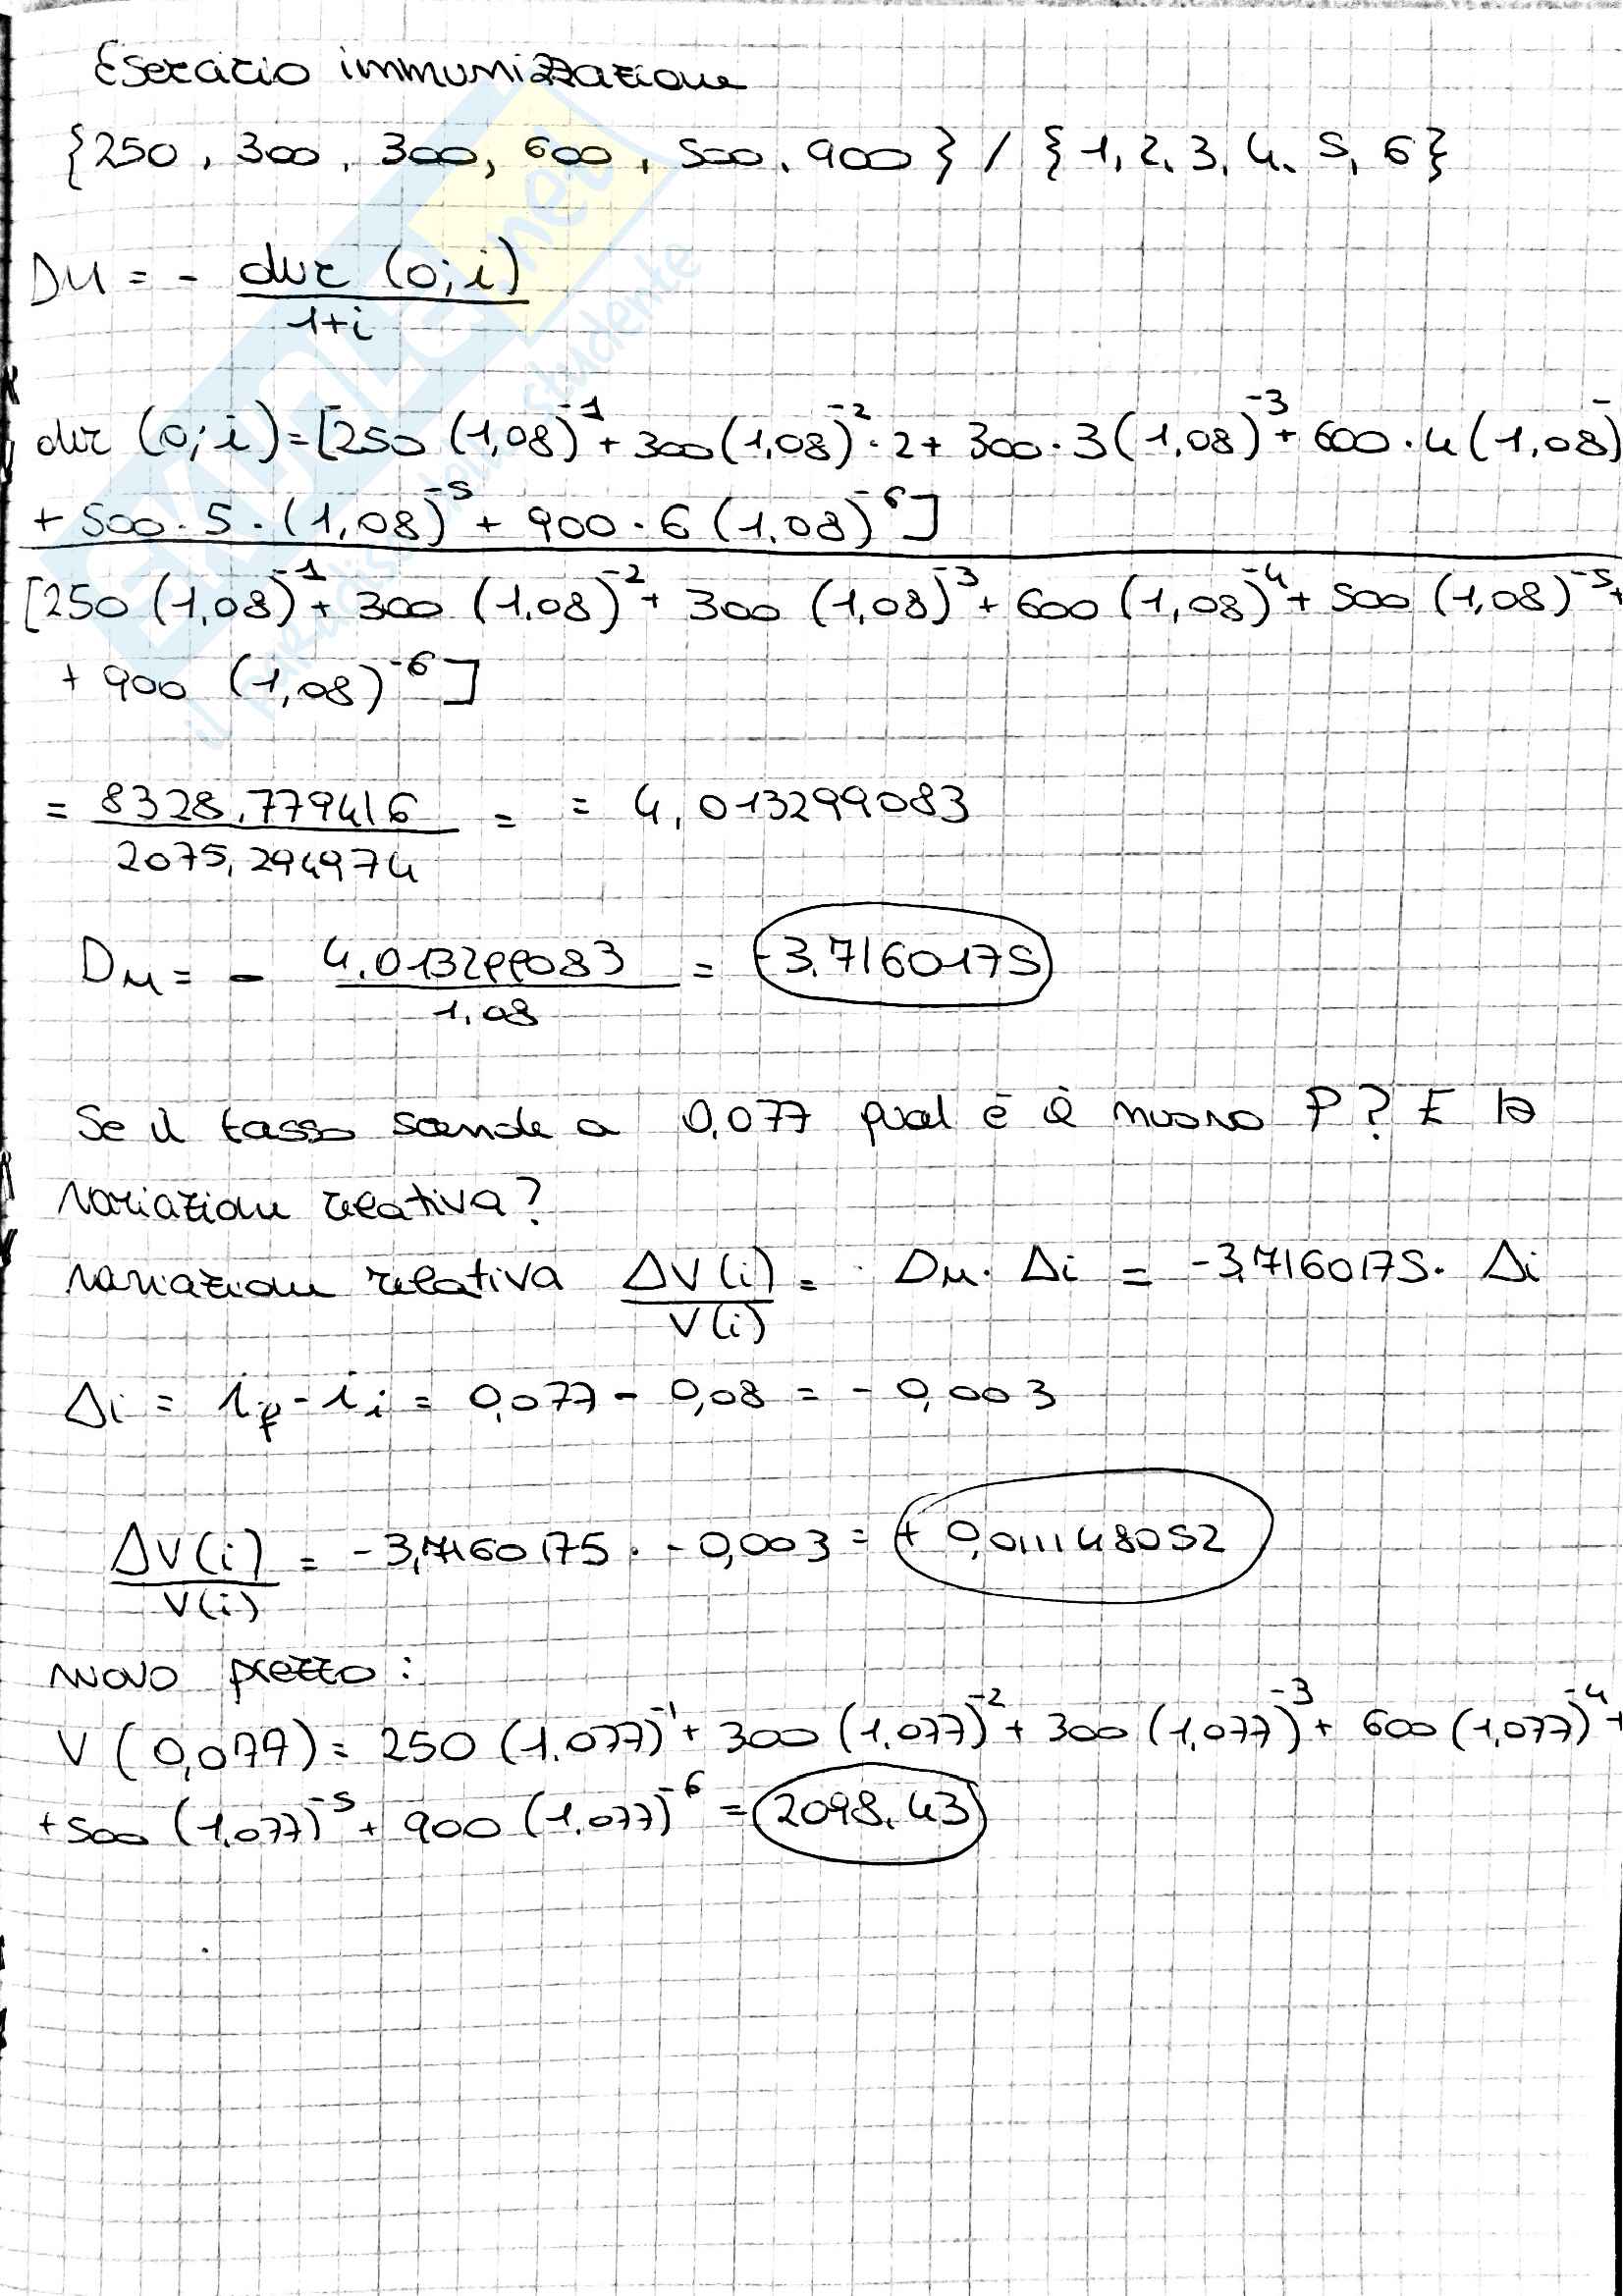 Esercizio immunizzazione
{250, 300, 300, 600, 500, 900} / {1, 2, 3, 4, 5, 6}
DM = - dur (0; i) / 1+i
dur (0; i) = [250 (1,08)^-1 + 300 (1,08)^-2 · 2 + 300 · 3 (1,08)^-3 + 600 · 4 (1,08)^-
+ 500 · 5 · (1,08)^-5 + 900 · 6 (1,08)^-6]
[250 (1,08)^-1 + 300 (1,08)^-2 + 300 (1,08)^-3 + 600 (1,08)^-4 + 500 (1,08)^-5 +
+ 900 (1,08)^-6]
= 8328,779416 / 2075,294974 = = 4,013299083
DM = - 4,013299083 / 1,08 = -3,7160175
Se il tasso scende a 0,077 qual è il nuovo P? E la
variazione relativa?
variazione relativa ΔV(i) / V(i) = DM · Δi = -3,7160175 · Δi
Δi = if - ii = 0,077 - 0,08 = - 0,003
ΔV(i) / V(i) = -3,7160175 · -0,003 = + 0,011148052
nuovo prezzo:
V (0,077) = 250 (1,077)^-1 + 300 (1,077)^-2 + 300 (1,077)^-3 + 600 (1,077)^-4 +
+ 500 (1,077)^-5 + 900 (1,077)^-6 = 2098,43